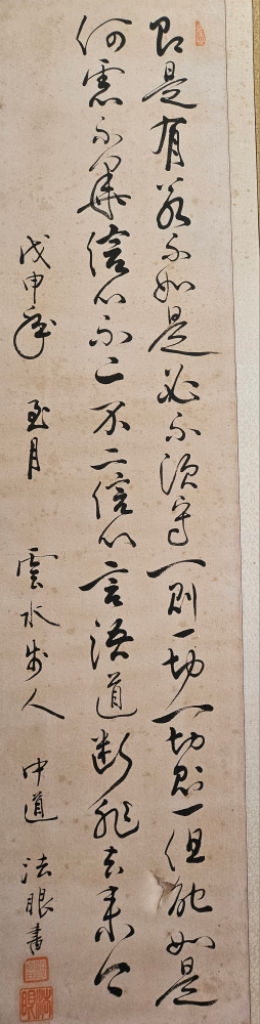 即是有若不如是必不須守一則一切一切則一但能如是
何慮不畢信心不二不二信心言語道斷非去來今
戊申年 至月 雲水人 中道 法眼書
法眼